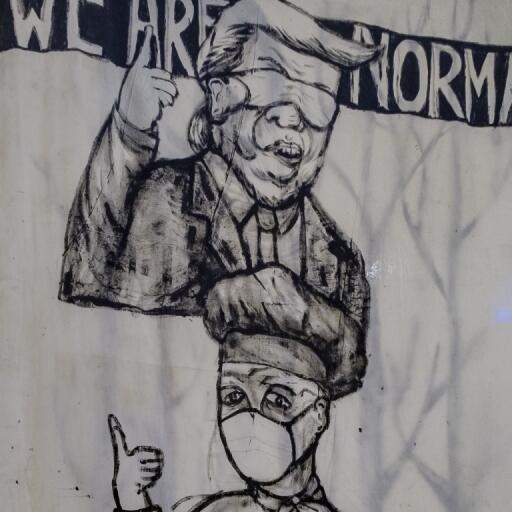 WE ARE NORMA